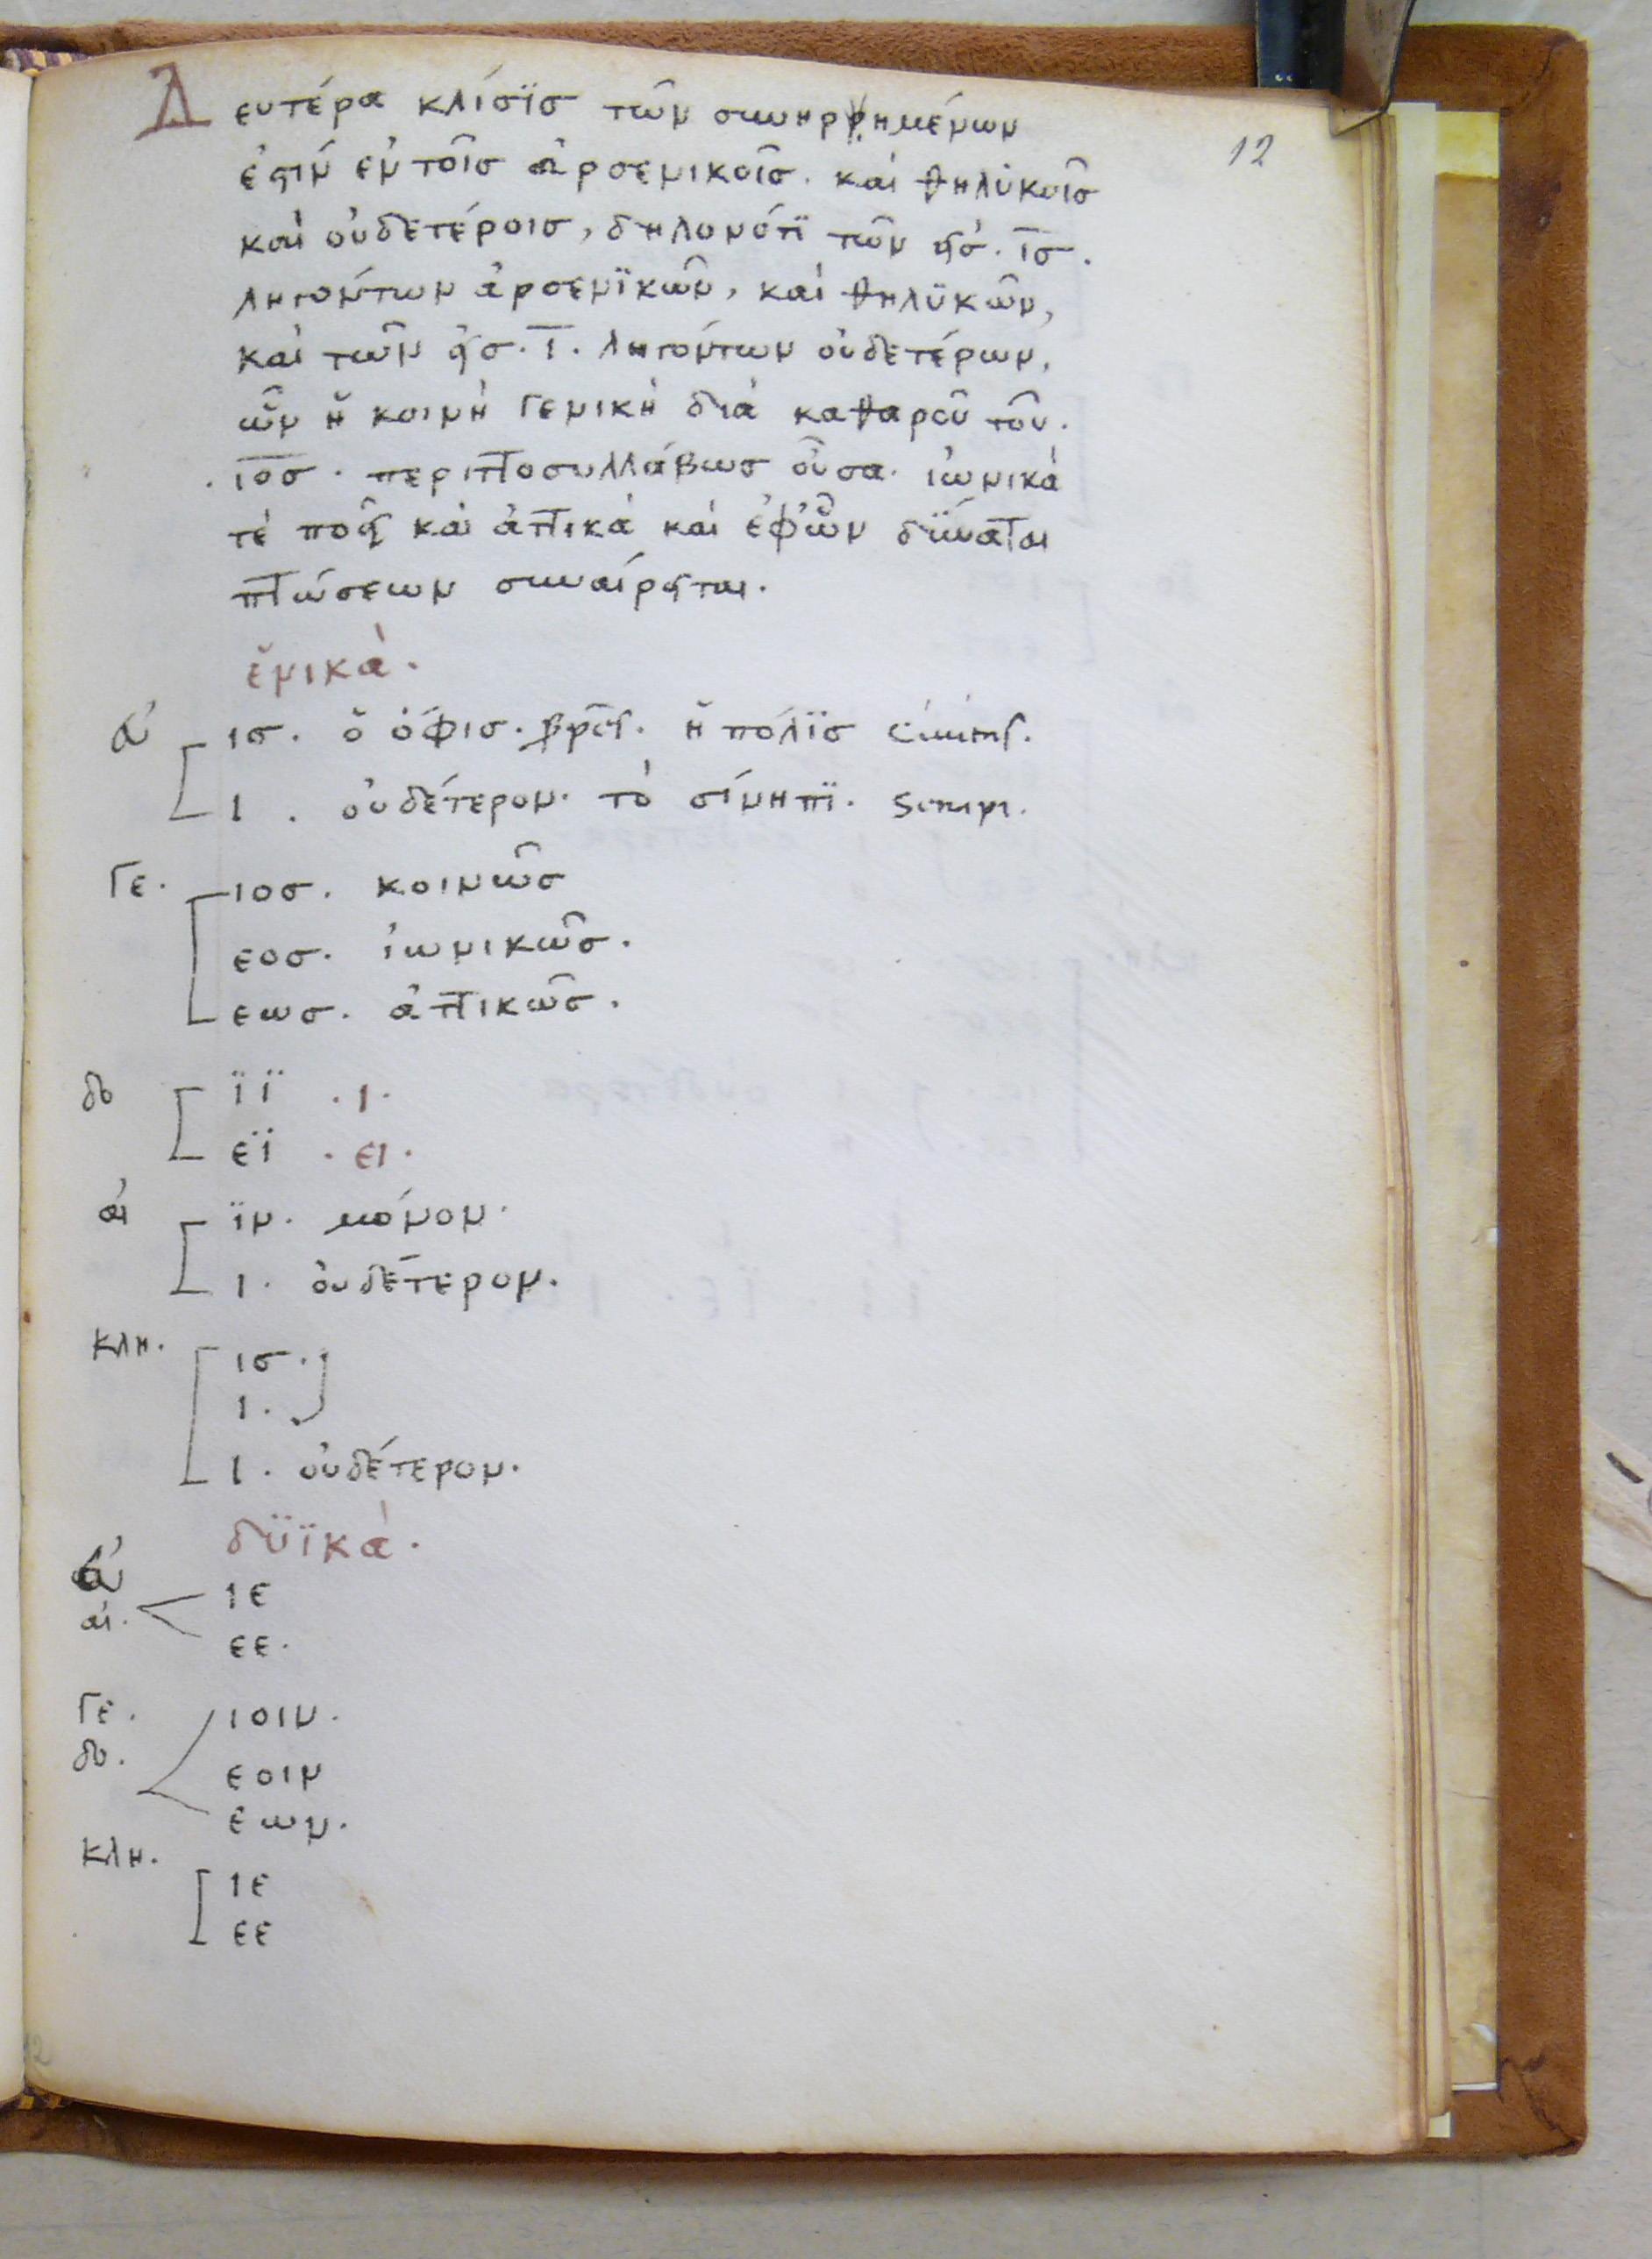 12
Δευτέρα κλίσϊσ τῶν συνηρρημένων
ἐστίν ἐν τοῖσ ἀρσενικοῖσ. καὶ θηλϋκοῖσ
καὶ οὐδετέροισ, δηλονότϊ τῶν εἰσ. ισ.
ληγόντων ἀρσενϊκῶν, καὶ θηλϋκῶν,
καὶ τῶν εἰσ. ι. ληγόντων οὐδετέρων,
ὧν ἡ κοινὴ γενικὴ διὰ καθαροῦ τοῦ.
. ιοσ. περιττοσυλλάβωσ οὖσα. ἰωνικά
τέ ποῇ καὶ ἀττικά καὶ ἐφ' ὧν δΰναται
πτώσεων συναίρεῖται.
ἑνικὰ.
εὐ ισ. ὁ ὄφισ. ἡ πόλϊσ
ι. οὐδέτερον. τὸ σίνηπϊ. Sinapi.
Γε. ιοσ. κοινῶσ
εοσ. ἰωνικῶσ.
εωσ. ἀττικῶσ.
δο ϊϊ .ι.
εϊ .ει.
αἰ ϊν. μόνον.
ι. οὐδέτερον.
κλη. ισ.
ι.
ι. οὐδέτερον.
δϋϊκὰ.
εὐ
αἰ. ιε
εε.
Γε. ιοιν.
δο. εοιν
εων.
κλη.
ιε
εε